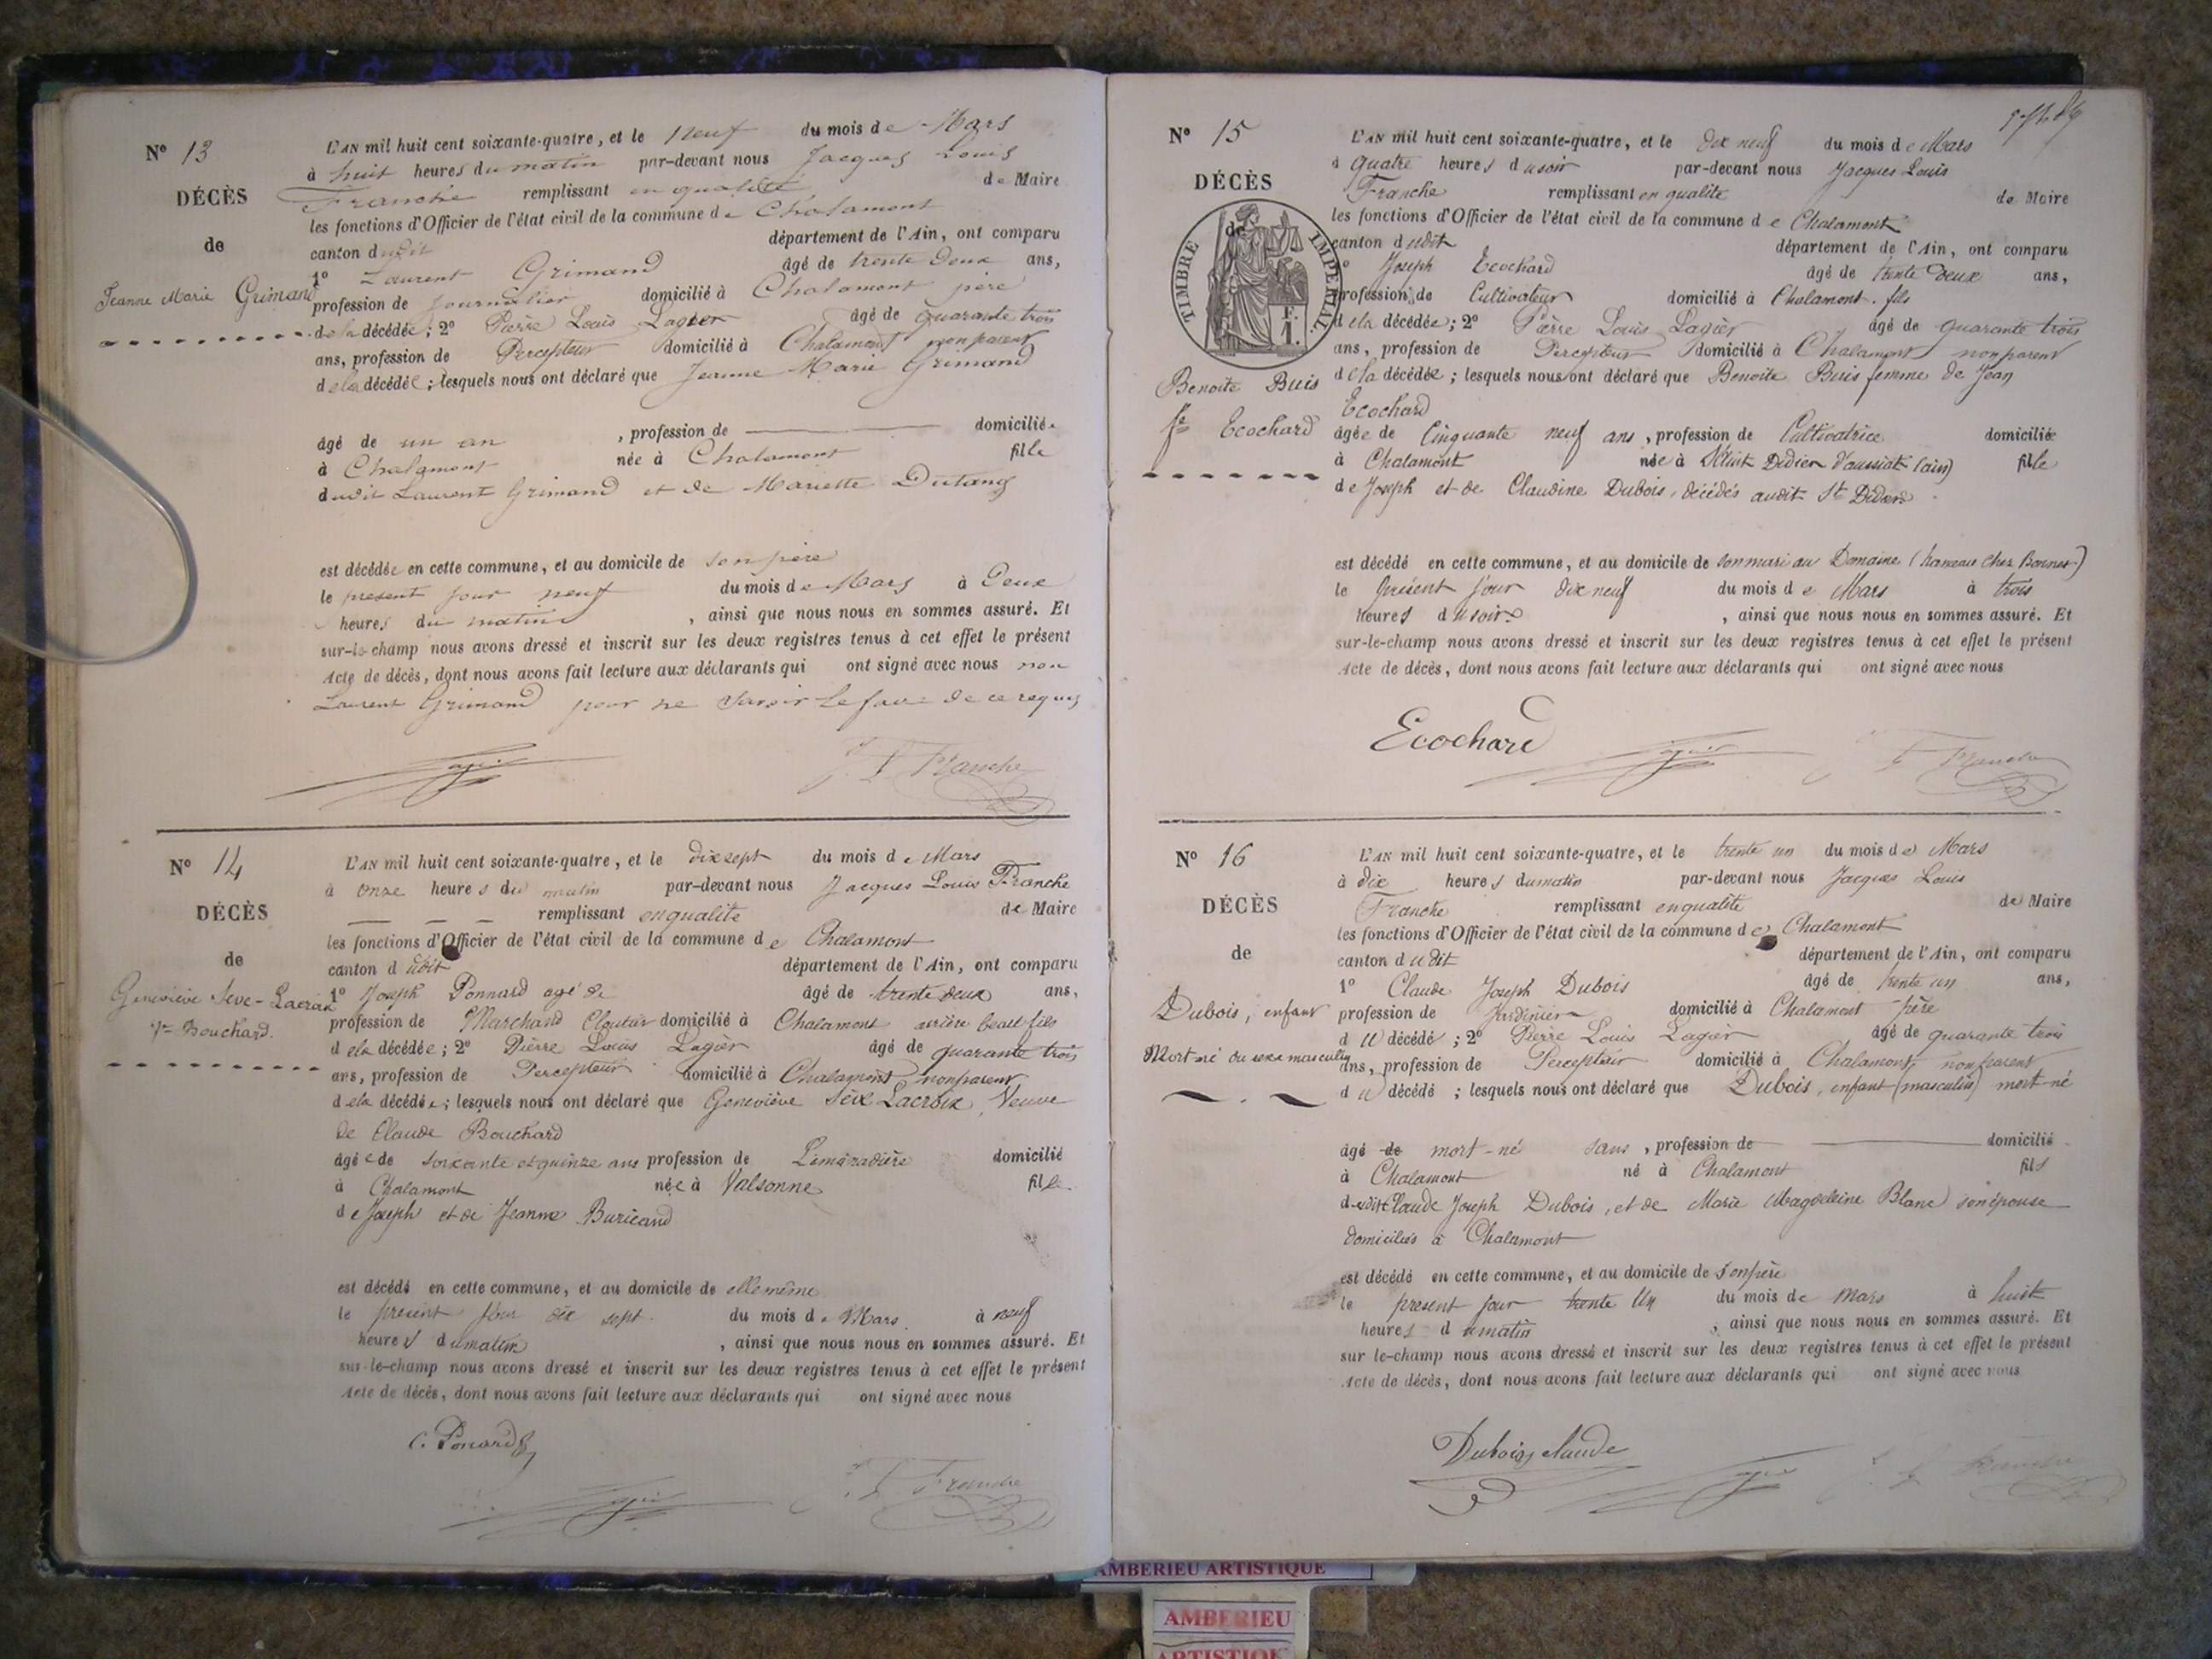 N° 13
DÉCÈS
de
Jeanne Marie Grimand
L'AN mil huit cent soixante-quatre, et le neuf du mois de Mars
à huit heures du matin par-devant nous Jacques Louis
Franche remplissant en qualité de Maire
les fonctions d'Officier de l'état civil de la commune de Chalamont
canton dudit département de l'Ain, ont comparu
1° Laurent Grimand âgé de trente deux ans,
profession de journalier domicilié à Chalamont père
de la décédée; 2° Pierre Louis Lagier âgé de quarante trois
ans, profession de Percepteur domicilié à Chalamont non parent
de la décédée; lesquels nous ont déclaré que Jeanne Marie Grimand
âgé de un an, profession de domicilié
à Chalamont née à Chalamont fille
dudit Laurent Grimand et de Mariette Dutang
est décédée en cette commune, et au domicile de son père
le present jour neuf du mois de Mars à Deux
heures du matin, ainsi que nous nous en sommes assuré. Et
sur-le-champ nous avons dressé et inscrit sur les deux registres tenus à cet effet le présent
Acte de décès, dont nous avons fait lecture aux déclarants qui ont signé avec nous non
Laurent Grimand pour ne savoir le faire de ce requis
Lagier J L Franche
N° 14
DÉCÈS
de
Geneviève Seve-Lacroix
Ve Bouchard.
L'AN mil huit cent soixante-quatre, et le dix sept du mois de Mars
à onze heures du matin par-devant nous Jacques Louis Franche
remplissant en qualité de Maire
les fonctions d'Officier de l'état civil de la commune de Chalamont
canton dudit département de l'Ain, ont comparu
1° Joseph Ponnard agé de âgé de trente deux ans,
profession de Marchand Cloutier domicilié à Chalamont arrière beau fils
de la décédée; 2° Pierre Louis Lagier âgé de quarante trois
ans, profession de Percepteur domicilié à Chalamont non parent
de la décédée; lesquels nous ont déclaré que Geneviève Seve Lacroix, Veuve
de Claude Bouchard
âgée de soixante et quinze ans profession de domicilié
à Chalamont née à Valsonne fille
de Joseph et de Jeanne Buricand
est décédé en cette commune, et au domicile de elle même
le present jour dix sept du mois de Mars à neuf
heures du matin, ainsi que nous nous en sommes assuré. Et
sur-le-champ nous avons dressé et inscrit sur les deux registres tenus à cet effet le présent
Acte de décès, dont nous avons fait lecture aux déclarants qui ont signé avec nous
C. Ponard
Lagier J L Franche
N° 15
DÉCÈS
de
TIMBRE IMPÉRIAL.
F.
1.
Benoite Buis
fe Ecochard
L'AN mil huit cent soixante-quatre, et le dix neuf du mois de Mars
à quatre heures du soir par-devant nous Jacques Louis
Franche remplissant en qualité de Maire
les fonctions d'Officier de l'état civil de la commune de Chalamont
canton dudit département de l'Ain, ont comparu
1° Joseph Ecochard âgé de trente deux ans,
profession de Cultivateur domicilié à Chalamont. fils
de la décédée; 2° Pierre Louis Lagier âgé de quarante trois
ans, profession de Percepteur domicilié à Chalamont non parent
de la décédée; lesquels nous ont déclaré que Benoite Buis femme de Jean
Ecochard
âgée de Cinquante neuf ans, profession de Cultivatrice domiciliée
à Chalamont née à Saint Didier d'aussiat (ain) fille
de Joseph et de Claudine Dubois, décédés audit St Didier
est décédé en cette commune, et au domicile de son mari au Domaine (hameau Chez Bonnet)
le présent jour dix neuf du mois de Mars à trois
heures du soir, ainsi que nous nous en sommes assuré. Et
sur-le-champ nous avons dressé et inscrit sur les deux registres tenus à cet effet le présent
Acte de décès, dont nous avons fait lecture aux déclarants qui ont signé avec nous
Ecochard Lagier J L Franche
N° 16
DÉCÈS
de
Dubois, enfant
Mort né du sexe masculin
L'AN mil huit cent soixante-quatre, et le trente un du mois de Mars
à dix heures du matin par-devant nous Jacques Louis
Franche remplissant en qualité de Maire
les fonctions d'Officier de l'état civil de la commune de Chalamont
canton dudit département de l'Ain, ont comparu
1° Claude Joseph Dubois âgé de trente un ans,
profession de Jardinier domicilié à Chalamont père
du décédé; 2° Pierre Louis Lagier âgé de quarante trois
ans, profession de Percepteur domicilié à Chalamont, non parent
du décédé; lesquels nous ont déclaré que Dubois, enfant (masculin) mort-né
âgé de mort-né sans, profession de domicilié
à Chalamont né à Chalamont fils
dudit Claude Joseph Dubois, et de Marie Magdeleine Blanc son épouse
domiciliés à Chalamont
est décédé en cette commune, et au domicile de son père
le present jour trente un du mois de mars à huit
heures du matin, ainsi que nous nous en sommes assuré. Et
sur-le-champ nous avons dressé et inscrit sur les deux registres tenus à cet effet le présent
Acte de décès, dont nous avons fait lecture aux déclarants qui ont signé avec nous
Dubois claude
Lagier J L Franche
AMBERIEU ARTISTIQUE
AMBERIEU
ARTISTIQUE